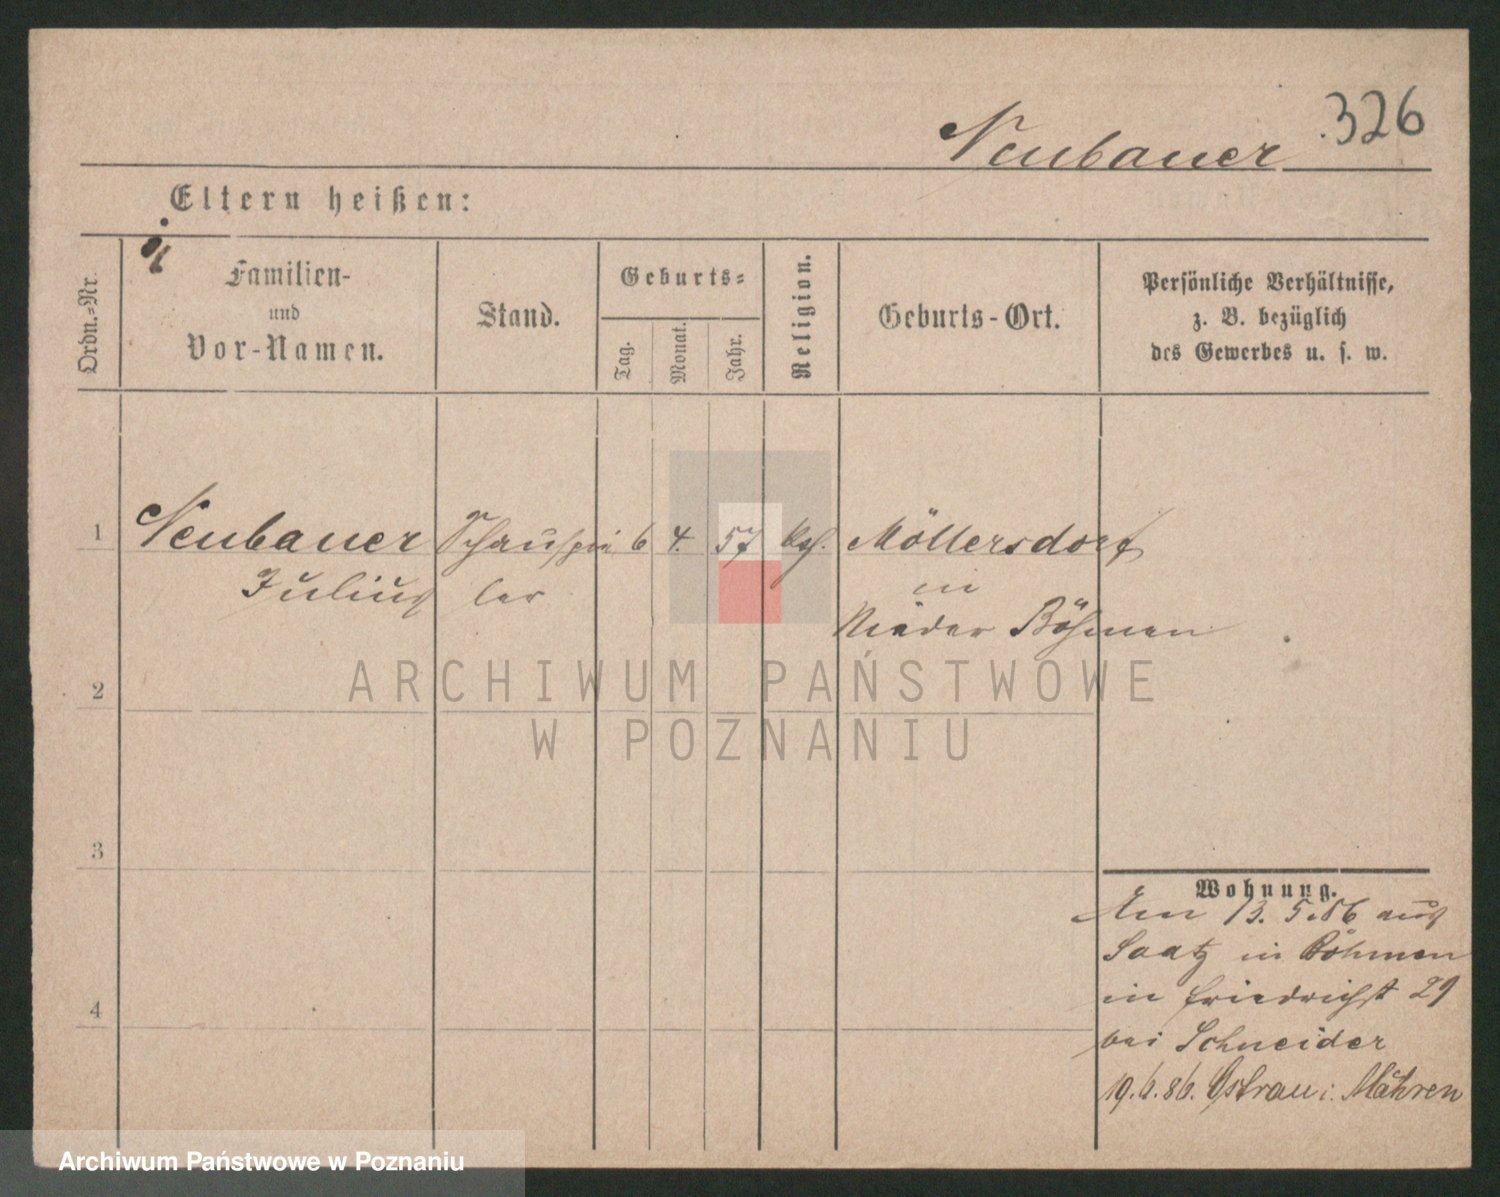 326
Neubauer
Eltern heißen:
Ordn.-Nr.
Familien-
und
Vor-Namen.
Stand.
Geburts-
Tag.
Monat.
Jahr.
Religion.
Geburts-Ort.
Persönliche Verhältnisse,
z. B. bezüglich
des Gewerbes u. s. w.
1 Neubauer Schauspie 6 4. 57 Möllersdorf
Julius ler in
Nieder Böhmen
2
3
4
Wohnung.
Am 13. 5. 86 aus
Saatz in Böhmen
in Friedrichst 29
bei Schneider
19.6.86. Ostrau i. Mähren
ARCHIWUM PAŃSTWOWE
W POZNANIU
Archiwum Państwowe w Poznaniu